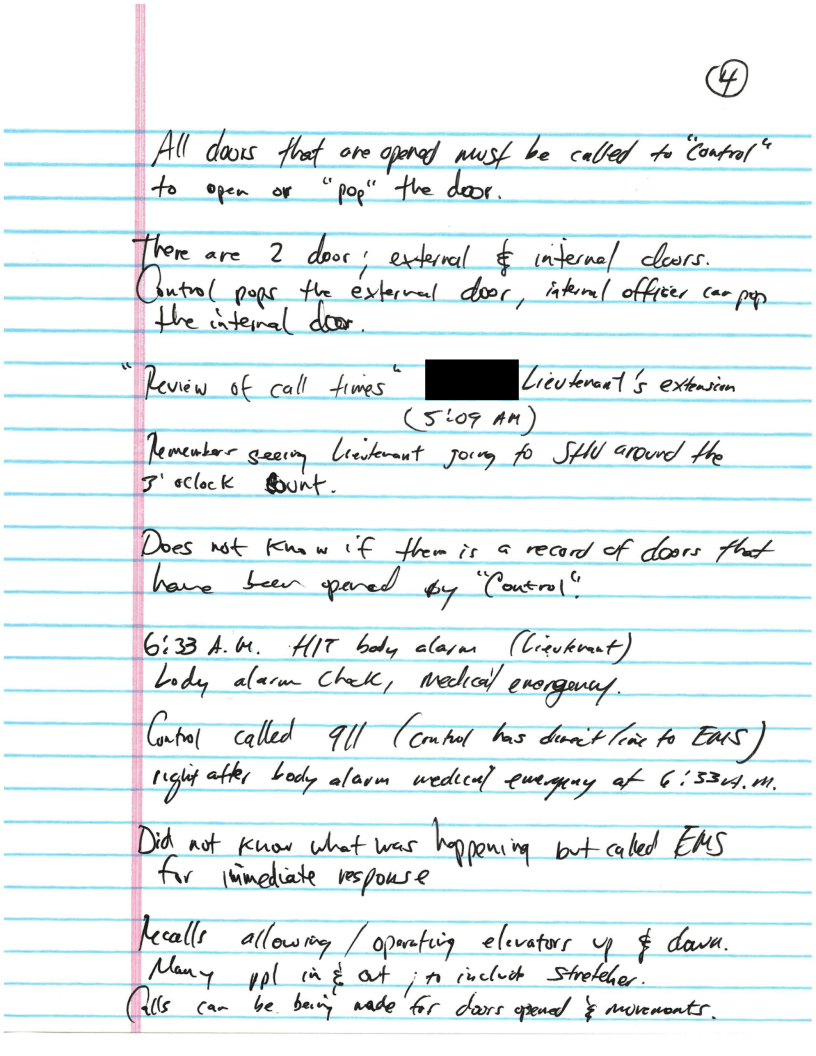 4
All doors that are opened must be called to "Control"
to open or "pop" the door.
There are 2 door; external & internal doors.
Control pops the external door, internal officer can pop
the internal door.
"Review of call times" Lieutenant's extension
(5:09 AM)
Remembers seeing Lieutenant going to SHU around the
3' oclock count.
Does not know if there is a record of doors that
have been opened by "Control".
6:33 A.M. HIT body alarm (Lieutenant)
body alarm check, medical emergency.
Control called 911 (control has direct line to EMS)
right after body alarm medical emergency at 6:33 A.M.
Did not know what was happening but called EMS
for immediate response
Recalls allowing / operating elevators up & down.
Many ppl in & out ; to include stretcher.
Calls can be being made for doors opened & movements.